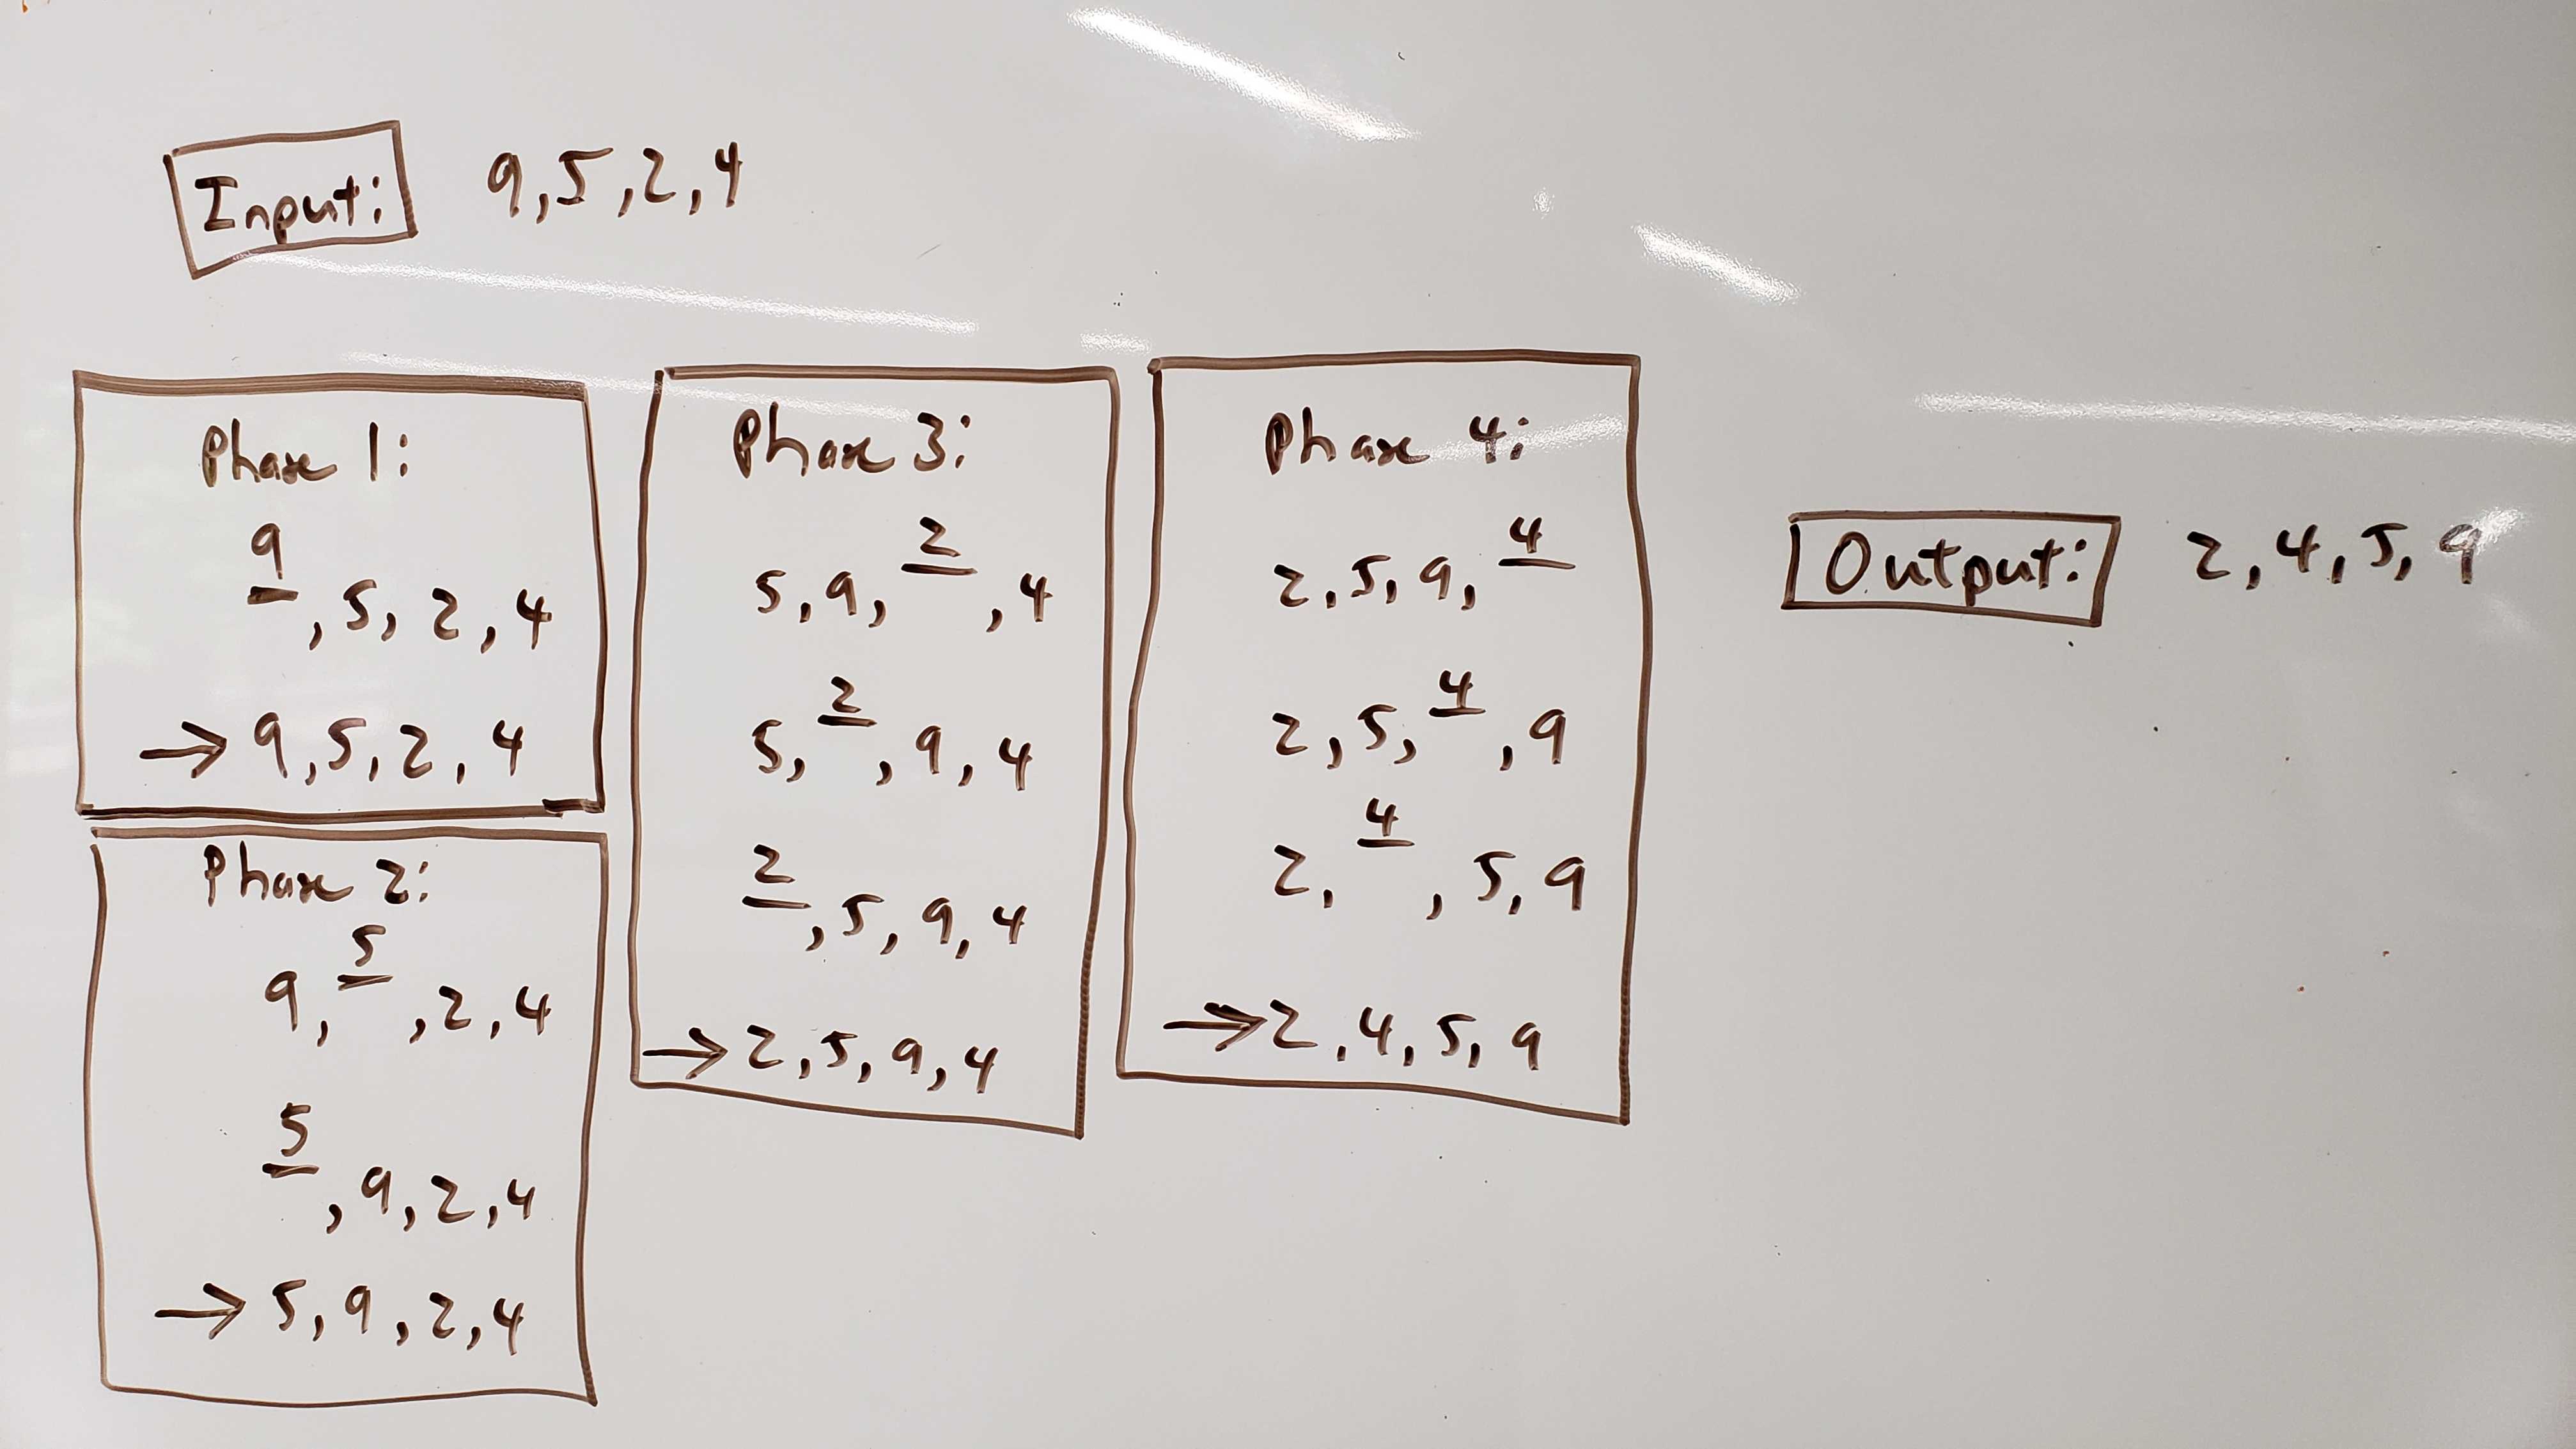 Input: 9,5,2,4
Phase 1:
9,5,2,4
→ 9,5,2,4
Phase 2:
9,5,2,4
5,9,2,4
→ 5,9,2,4
Phase 3:
5,9,2,4
5,2,9,4
2,5,9,4
→ 2,5,9,4
Phase 4:
2,5,9,4
2,5,4,9
2,4,5,9
→ 2,4,5,9
Output: 2,4,5,9